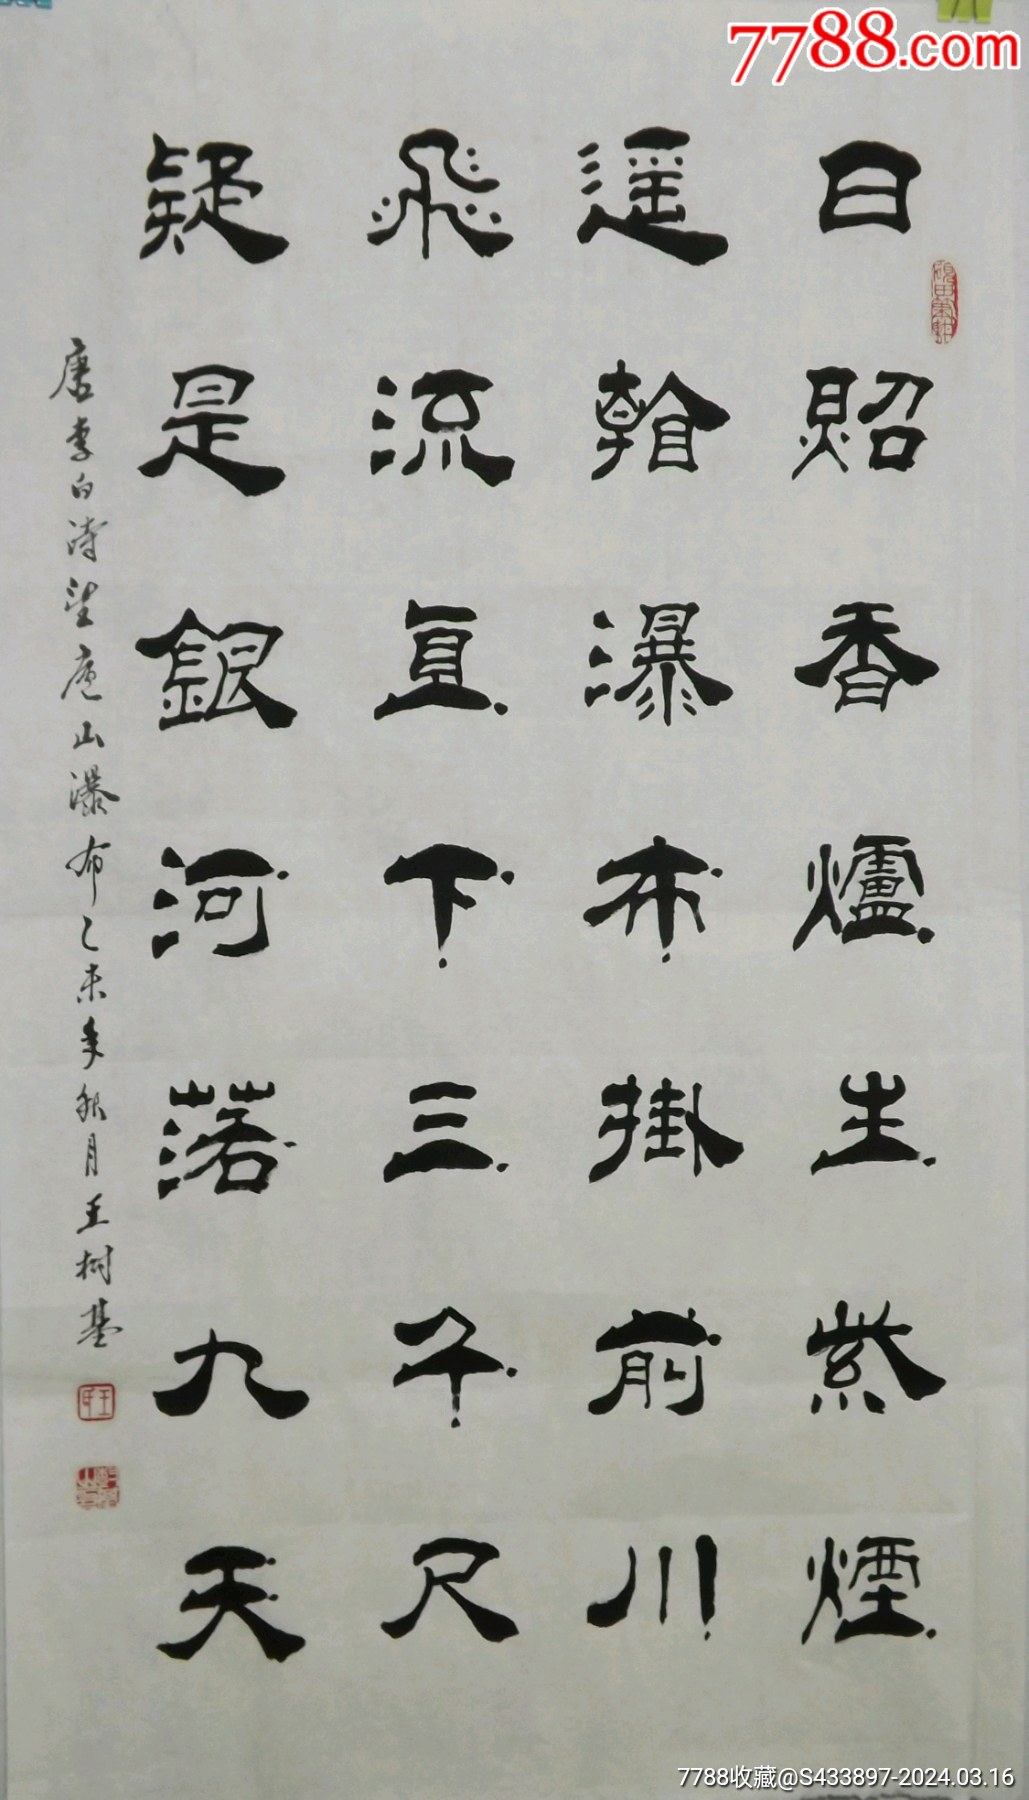 7788.com
日照香爐生紫煙
遥看瀑布掛前川
飛流直下三千尺
疑是銀河落九天
唐李白诗望庐山瀑布乙未年秋月王树基
7788收藏@S433897-2024.03.16